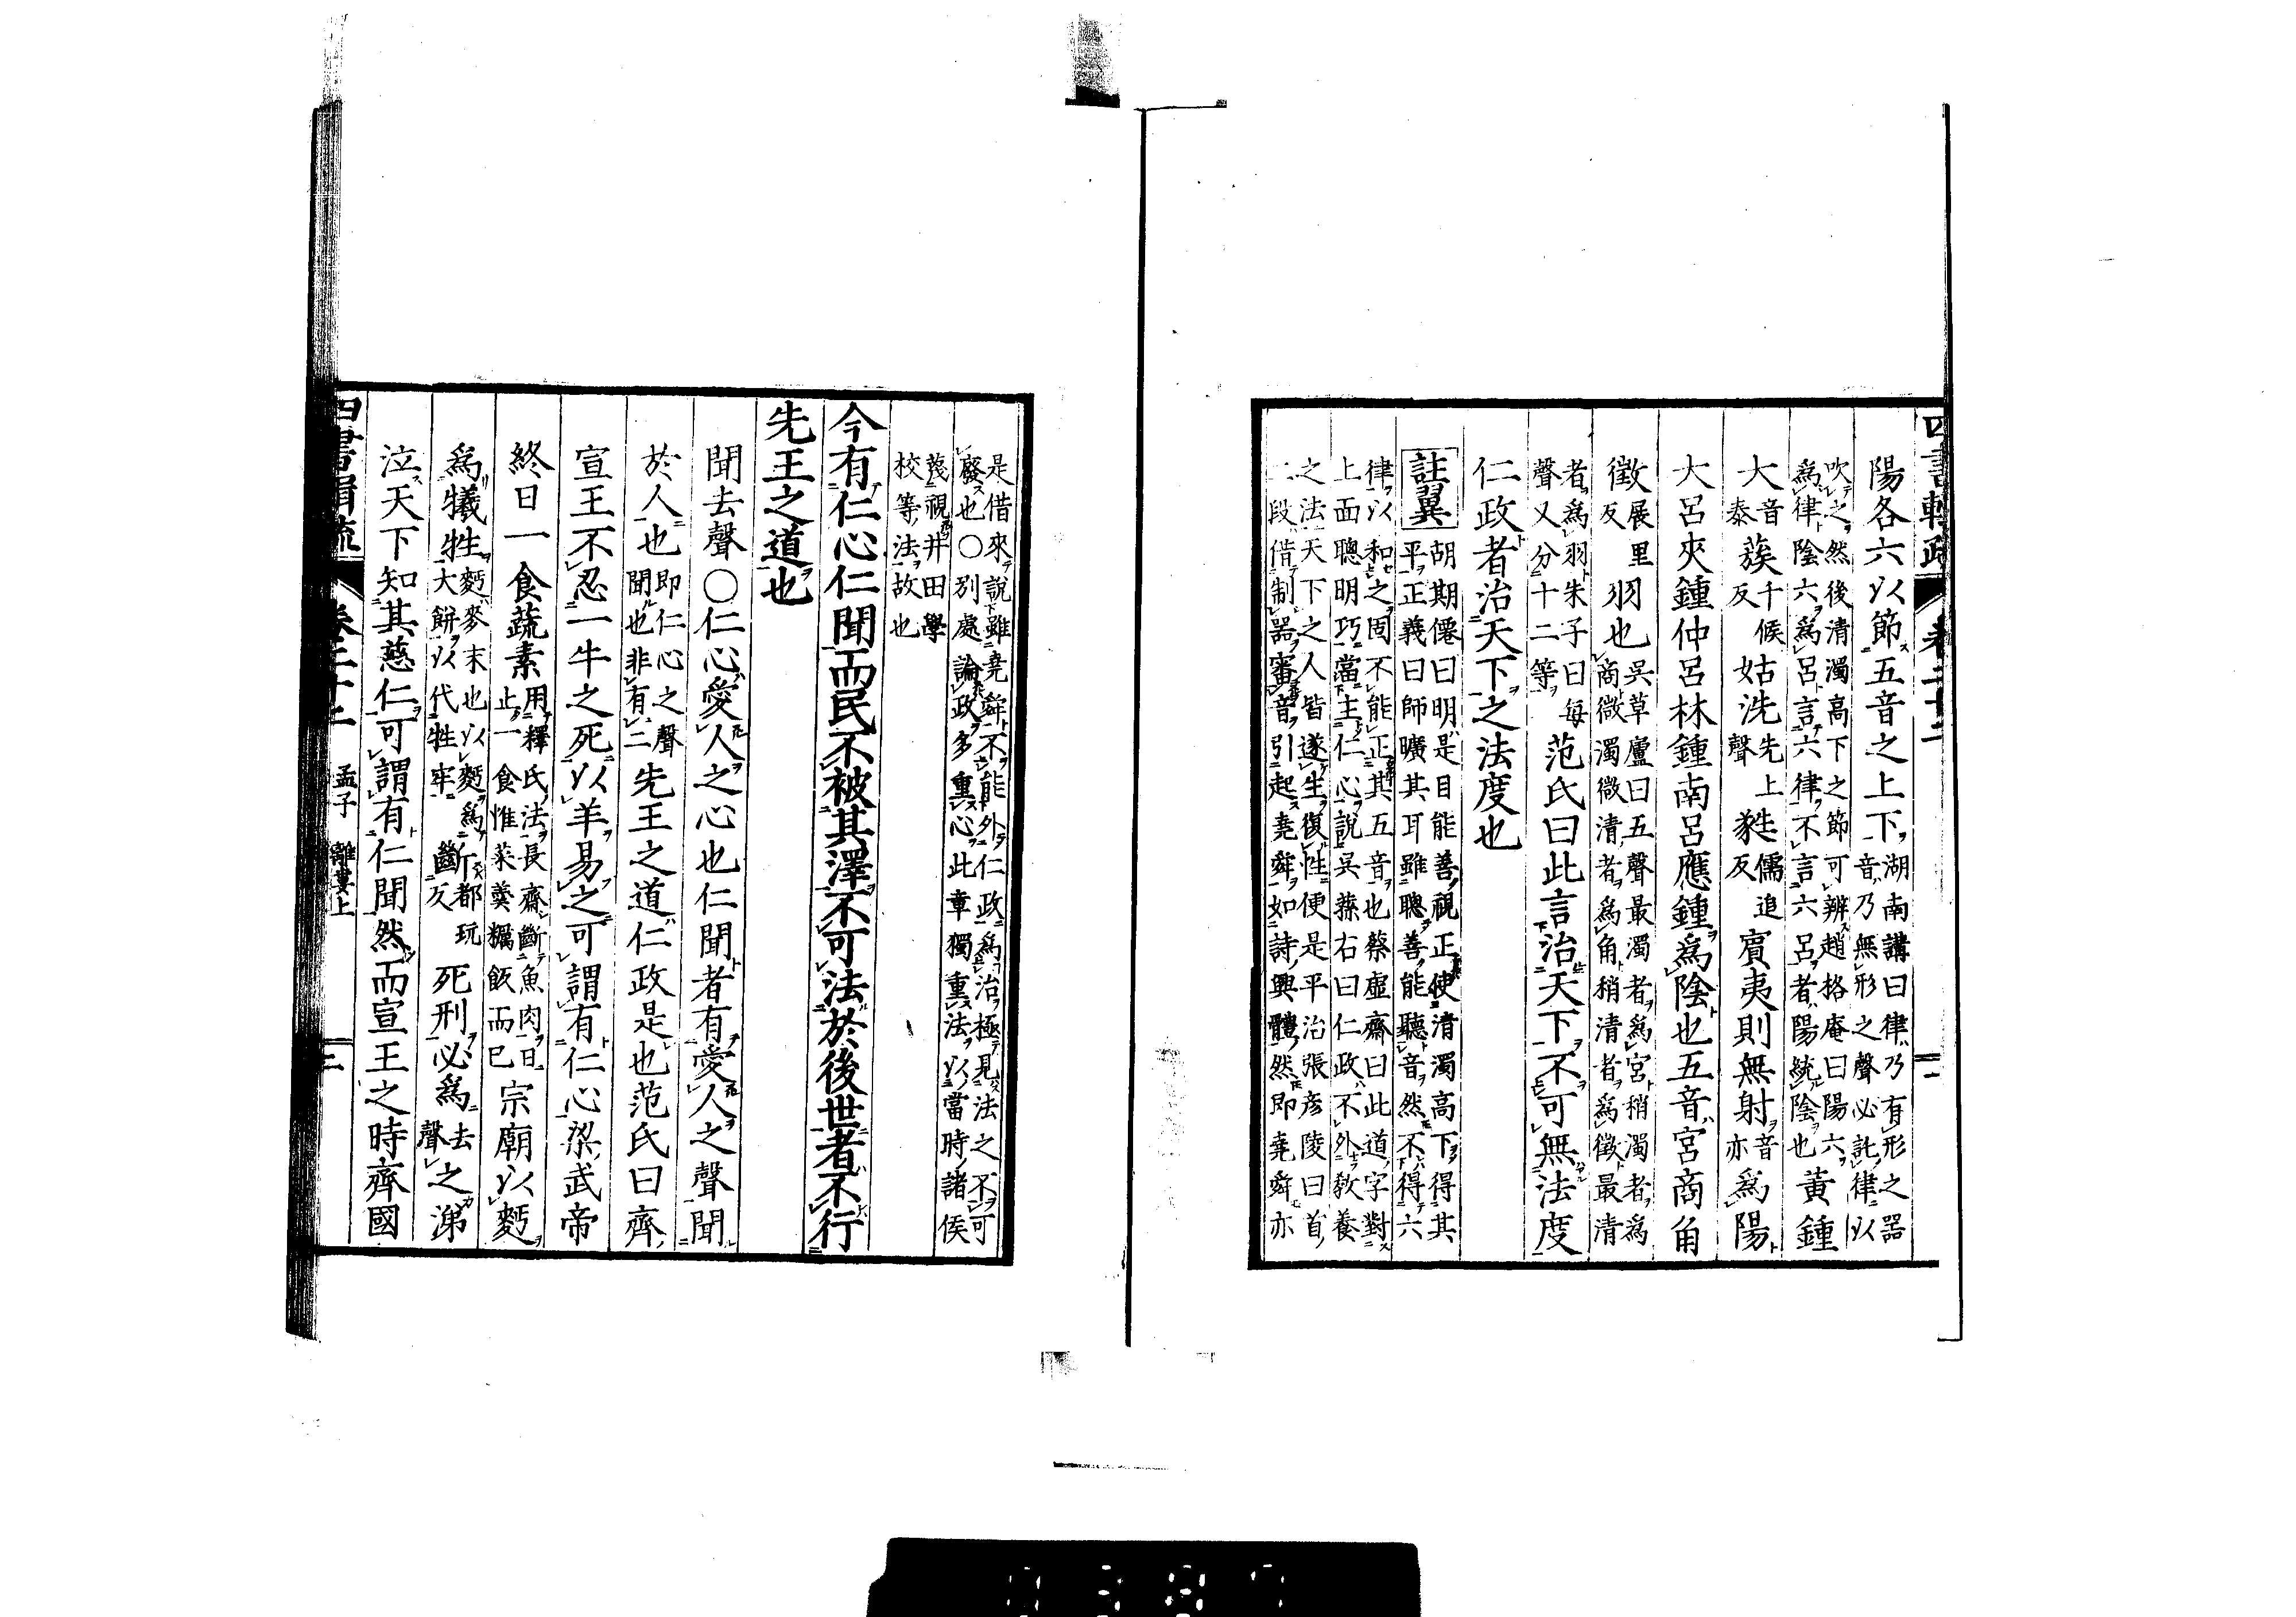 陽各六以節五音之上下湖南講曰律乃有形之器
音乃無形之聲必託律以
吹之然後清濁高下之節可辨趙格庵曰陽六
爲律陰六爲呂言六律不言六呂者陽統陰也黃鍾
大音泰蔟千候反姑洗先上聲蕤儒追反賓夷則無射音亦爲陽
大呂夾鍾仲呂林鍾南呂應鍾爲陰也五音宮商角
徵展里反羽也吳草廬曰五聲最濁者爲宮稍濁者爲
商微濁微清者爲角稍清者爲徵最清
者爲羽朱子曰每
聲又分十二等范氏曰此言治天下不可無法度
仁政者治天下之法度也
註翼胡期僊曰明是目能善視正使清濁高下得其
平正義曰師曠其耳雖聰善能聽音然不得六
律以和之固不能正其五音也蔡虛齋曰此道字對
上面聰明巧當主仁心說吳蓀右曰仁政不外教養
之法天下之人皆遂生復性便是平治張彦陵曰首
二段借制器審音引起堯舜如詩興體然即堯舜亦
是借來說雖堯舜不能外仁政爲治極見法之不可
廢也○別處論政多重心此章獨重法以當時諸侯
蔑視井田學
校等法故也
今有仁心仁聞而民不被其澤不可法於後世者不行
先王之道也
聞去聲○仁心愛人之心也仁聞者有愛人之聲聞
於人也即仁心之聲
聞也非有二先王之道仁政是也范氏曰齊
宣王不忍一牛之死以羊易之可謂有仁心梁武帝
終日一食蔬素用釋氏法長齋斷魚肉日
止一食惟菜羹糲飯而已宗廟以麪
爲犧牲麪麥末也以麪爲
大餅以代牲牢斷都玩反死刑必爲去聲之涕
泣天下知其慈仁可謂有仁聞然而宣王之時齊國
四書輯疏 卷二十二 孟子 離婁上 三